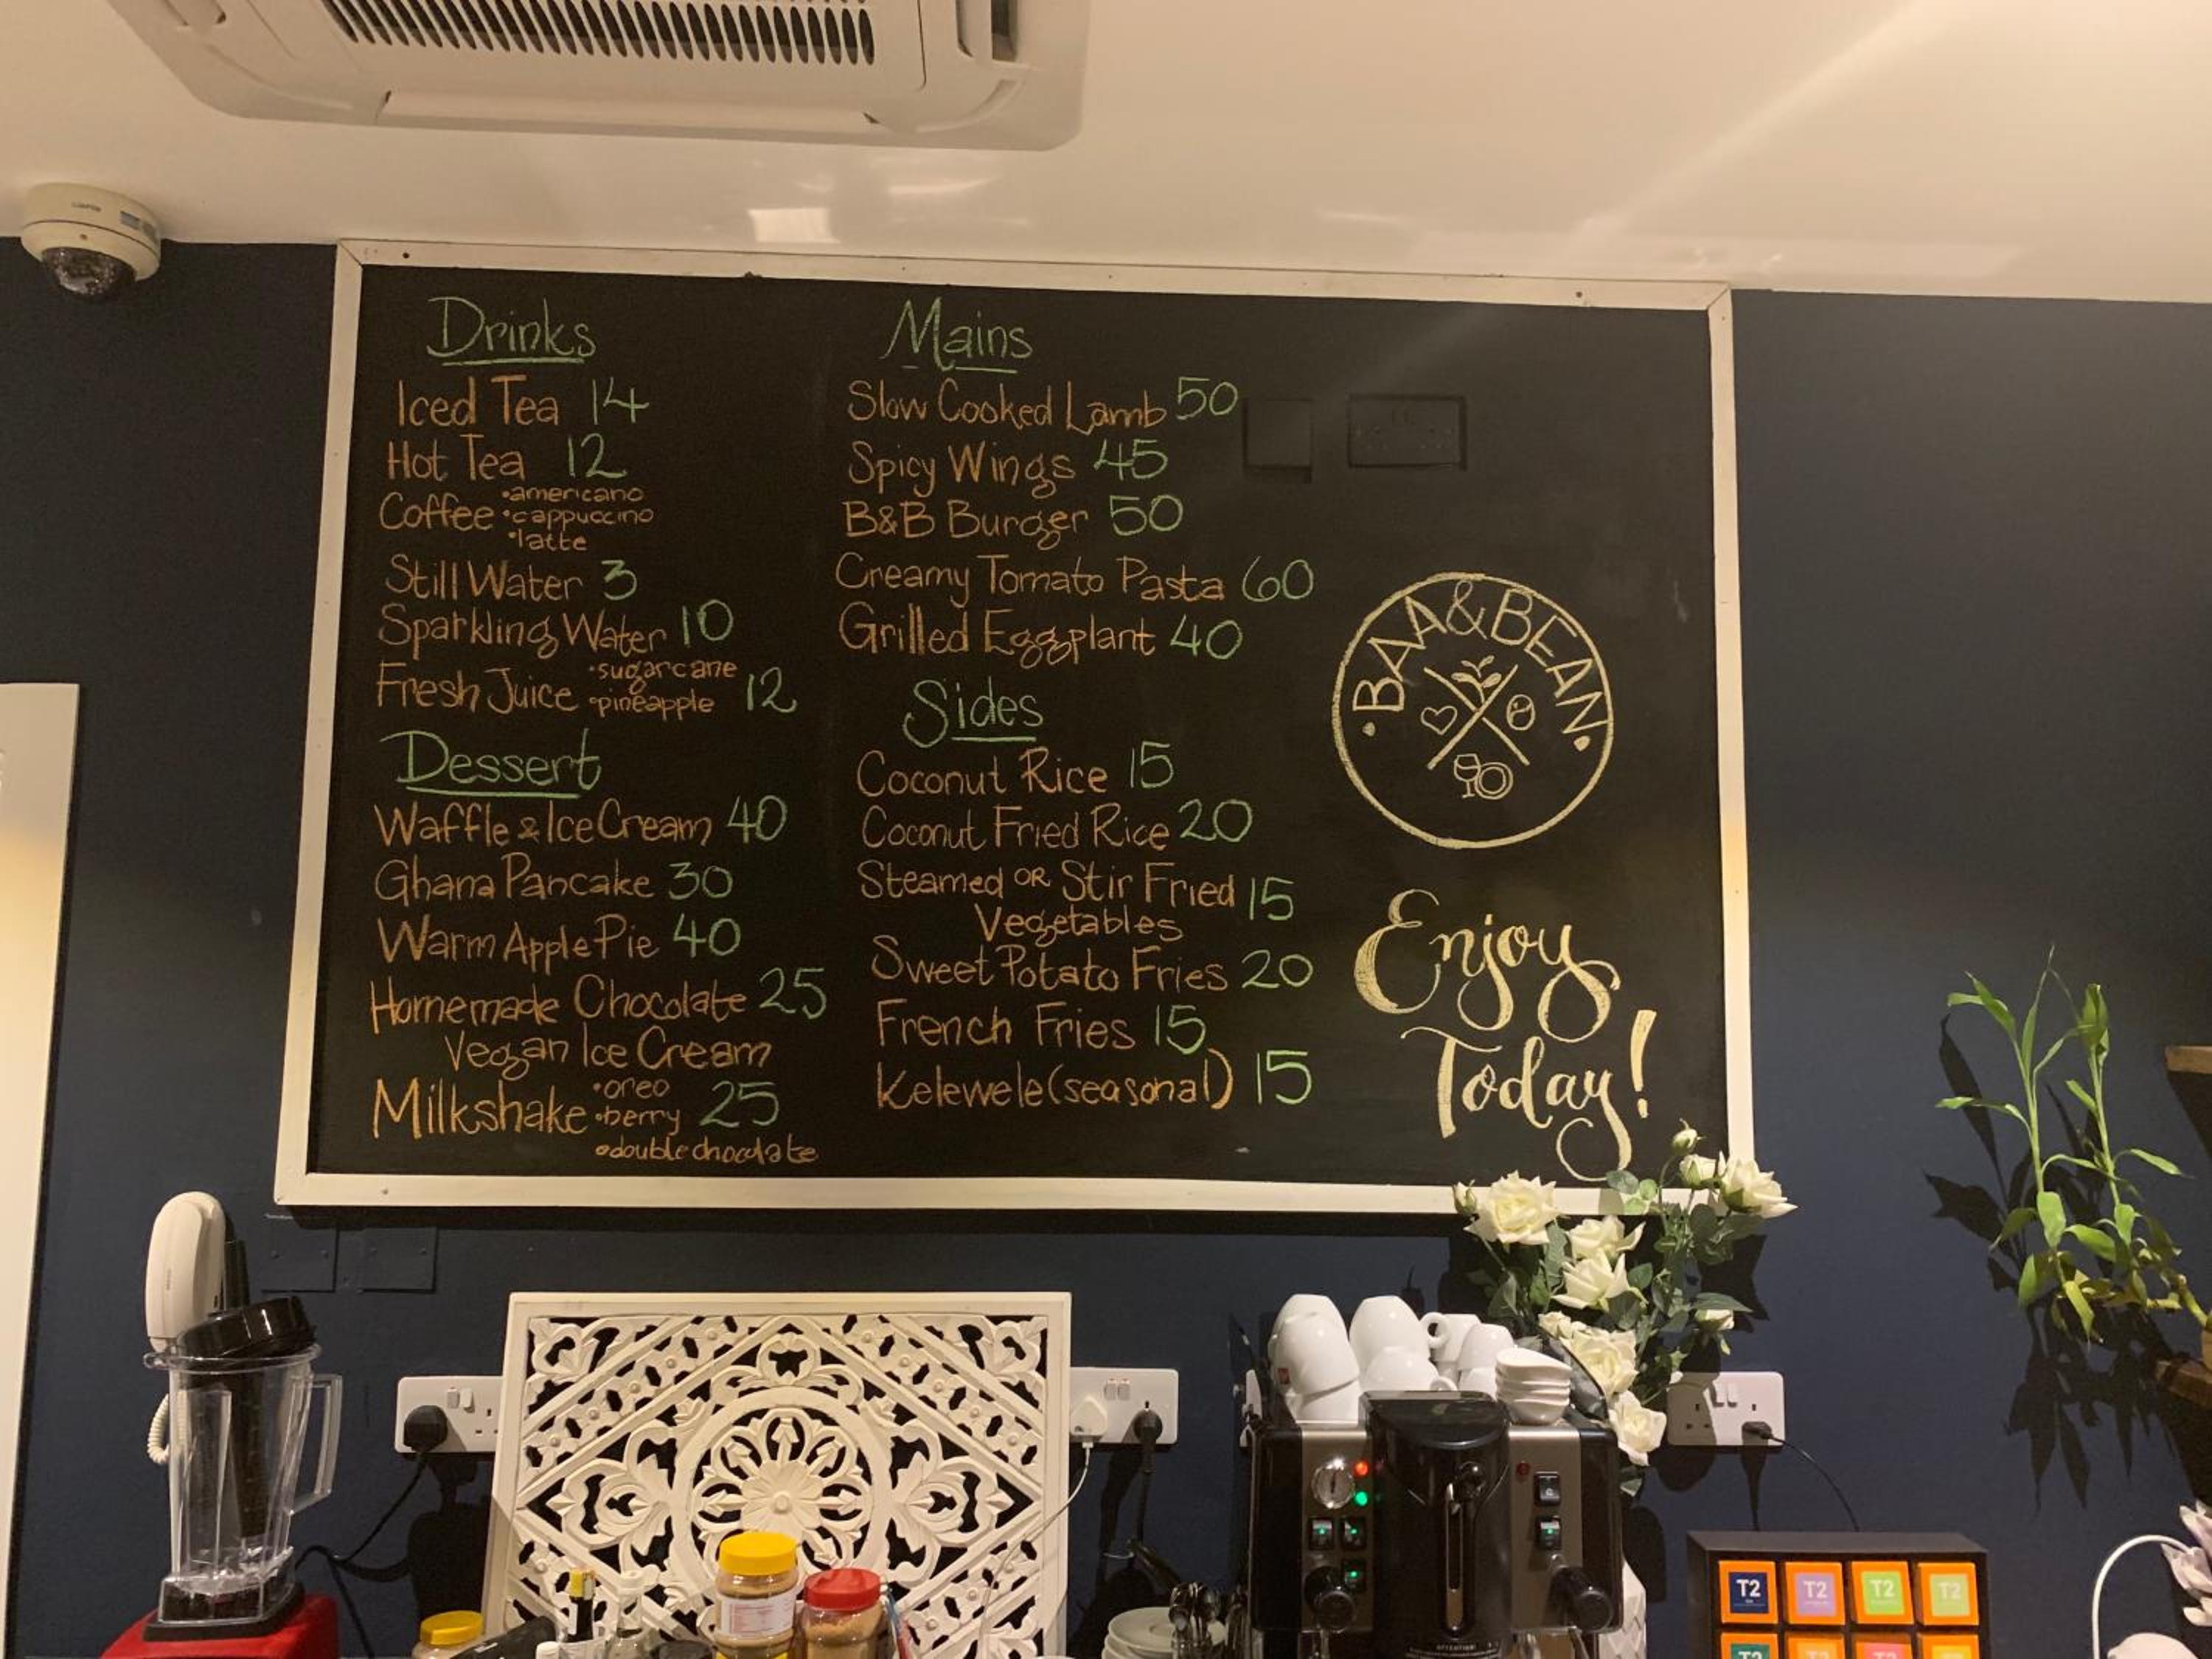 Drinks
Iced Tea 14
Hot Tea 12
Coffee •americano
•cappuccino
•latte
Still Water 3
Sparkling Water 10
Fresh Juice •sugarcane
•pineapple 12
Dessert
Waffle & Ice Cream 40
Ghana Pancake 30
Warm Apple Pie 40
Homemade Chocolate 25
Vegan Ice Cream
Milkshake •oreo
•berry 25
•double chocolate
Mains
Slow Cooked Lamb 50
Spicy Wings 45
B&B Burger 50
Creamy Tomato Pasta 60
Grilled Eggplant 40
Sides
Coconut Rice 15
Coconut Fried Rice 20
Steamed OR Stir Fried 15
Vegetables
Sweet Potato Fries 20
French Fries 15
Kelewele (seasonal) 15
•BAA&BEAN•
Enjoy
Today!
T2 T2 T2 T2
T2 T2 T2